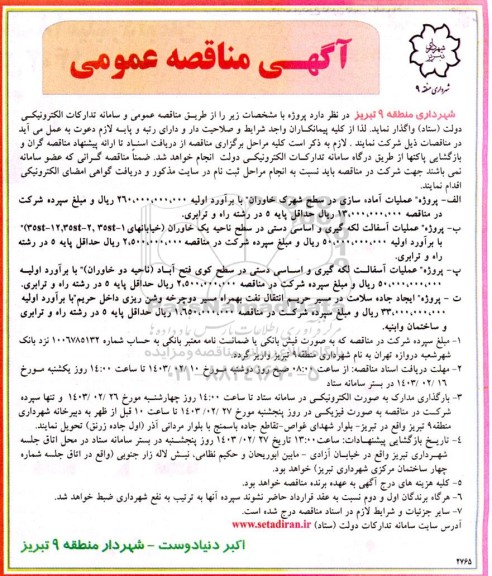 آگهـی مناقصه عمومی
شهرداری تبریز
شهرداری منطقه ۹
شهرداری منطقه ۹ تبریز در نظر دارد پروژه با مشخصات زیر را از طریـق مناقصه عمومی و سامانه تدارکات الکترونیکـی
دولت (ستاد) واگذار نماید. لذا از کلیه پیمانکـاران واجد شرایط و صلاحیت دار و دارای رتبه و پایـه لازم دعوت به عمل می آید
در مناقصات ذیل شرکت نمایند . لازم به ذکر است کلیه مراحل برگزاری مناقصه از دریافت اسنـاد تا ارائه پیشنهاد مناقصه گران و
بازگشایی پاکتها از طریق درگاه سامانه تدارکـات الکترونیکـی دولت انجام خواهد شد. ضمناً مناقصه گـرانی که عضو سامانه
نمی باشند جهت شرکت در مناقصه باید نسبت به انجام مراحل ثبت نام در سایت مذکور و دریافت گواهی امضای الکترونیکی
اقدام نمایند.
الف- پروژه" عملیات آماده سازی در سطح شهرک خاوران" با برآورد اولیه ۲۶۰,۰۰۰,۰۰۰,۰۰۰ ریال و مبلغ سپرده شرکت
در مناقصه ۱۳,۰۰۰,۰۰۰,۰۰۰ ریال حداقل پایه ۵ در رشته راه و ترابری.
ب- پروژه" عملیات آسفالت لکه گیری و اساسی دستی در سطح ناحیه یک خاوران (خیابانهای ۱-۳۵st ،۲-۳۵st،۱۲-۳۵st)"
با برآورد اولیه ۵۰,۰۰۰,۰۰۰,۰۰۰ ریال و مبلغ سپرده شرکت در مناقصه ۲,۵۰۰,۰۰۰,۰۰۰ ریال حداقل پایه ۵ در رشته
راه و ترابری.
پ- پروژه" عملیات آسفالـت لکه گیری و اسـاسی دستی در سطح کوی فتح آبـاد (ناحیه دو خاوران)" با برآورد اولیـه
۵۰,۰۰۰,۰۰۰,۰۰۰ ریال و مبلغ سپرده شرکت در مناقصه ۲,۵۰۰,۰۰۰,۰۰۰ ریال حداقل پایه ۵ در رشته راه و ترابری.
ت - پروژه" ایجاد جاده سلامت در مسیر حریـم انتقال نفت بهمراه مسیر دوچرخه وشن ریزی داخل حریم"با برآورد اولیه
۳۳,۰۰۰,۰۰۰,۰۰۰ ریال و مبلغ سپرده شرکت در مناقصه ۱,۶۵۰,۰۰۰,۰۰۰ ریال حداقل پایه ۵ در رشته راه و ترابری
و ساختمان وابنیه.
۱- مبلغ سپرده شرکت در مناقصه که به صورت فیش بانکی یا ضمانت نامه معتبر بانکی به حساب شماره ۱۰۰۶۷۸۵۱۳۲ نزد بانک
شهرشعبه دروازه تهران به نام شهرداری منطقه۹ تبریز واریز گردد.
۲- مهلت دریافت اسناد مناقصه: از ساعت ۰۸:۰۰ صبح روز دوشنبه مـورخ ۱۴۰۳/۰۲/۱۰ تا ساعت ۱۴:۰۰ روز یکشنبه مـورخ
۱۴۰۳/۰۲/۱۶ در بستر سامانه ستاد
۳- بارگذاری مدارک به صورت الکترونیکـی در سامانه ستاد تا ساعت ۱۴:۰۰ روز چهارشنبـه مورخ ۱۴۰۳/۰۲/۲۶ و تنها سپرده
شرکت در مناقصه به صورت فیزیکـی در روز پنجشنبه مورخ ۱۴۰۳/۰۲/۲۷ تا ساعت ۱۰ قبل از ظهر به دبیرخانه شهرداری
منطقه۹ تبریز واقع در تبریز- بلوار شهدای غواص-تقاطع جاده باسمنج با بلوار مردانی آذر (اول جاده زرنق) تحویل نمایند.
۴- تاریـخ بازگشایی پیشنهـادات: ساعت۱۳:۰۰ تاریخ ۱۴۰۳/۰۲/۲۷ روز پنجشنبه در بستر سامانه ستاد در محل اتاق جلسه
شهـرداری تبریز واقع در خیابـان آزادی - مابین ابوریحان و حکیم نظامی، نبـش لاله زار جنوبی (واقع در اتاق جلسه شماره
چهار ساختمان مرکزی شهرداری تبریز) خواهد بود.
۵- کلیه هزینه های درج آگهی به عهده برنده مناقصه خواهد بود.
۶- هرگاه برندگان اول و دوم نسبت به عقد قرارداد حاضر نشوند سپرده آنها به ترتیب به نفع شهرداری ضبط خواهد شد.
۷- سایر جزئیات و شرایط لازم در اسناد مناقصه درج شده است.
آدرس سایت سامانه تدارکات دولت (ستاد) www.setadiran.ir
اکبر دنیادوست - شهردار منطقه ۹ تبریز
۲۷۶۵